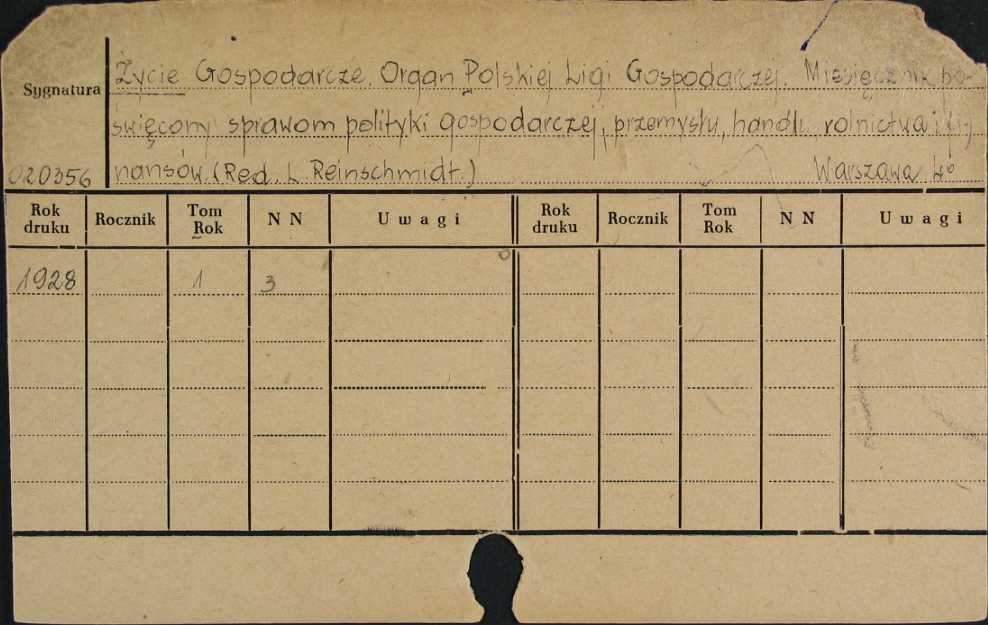 Życie Gospodarcze. Organ Polskiej Ligi Gospodarczej. Miesięcznik po-
Sygnatura
święcony sprawom polityki gospodarczej, przemysłu, handlu rolnictwa i fi-
020356 nansów. (Red. L. Reinschmidt.) Warszawa 4°
Rok druku Rocznik Tom Rok NN Uwagi Rok druku Rocznik Tom Rok NN Uwagi
1928 1 3